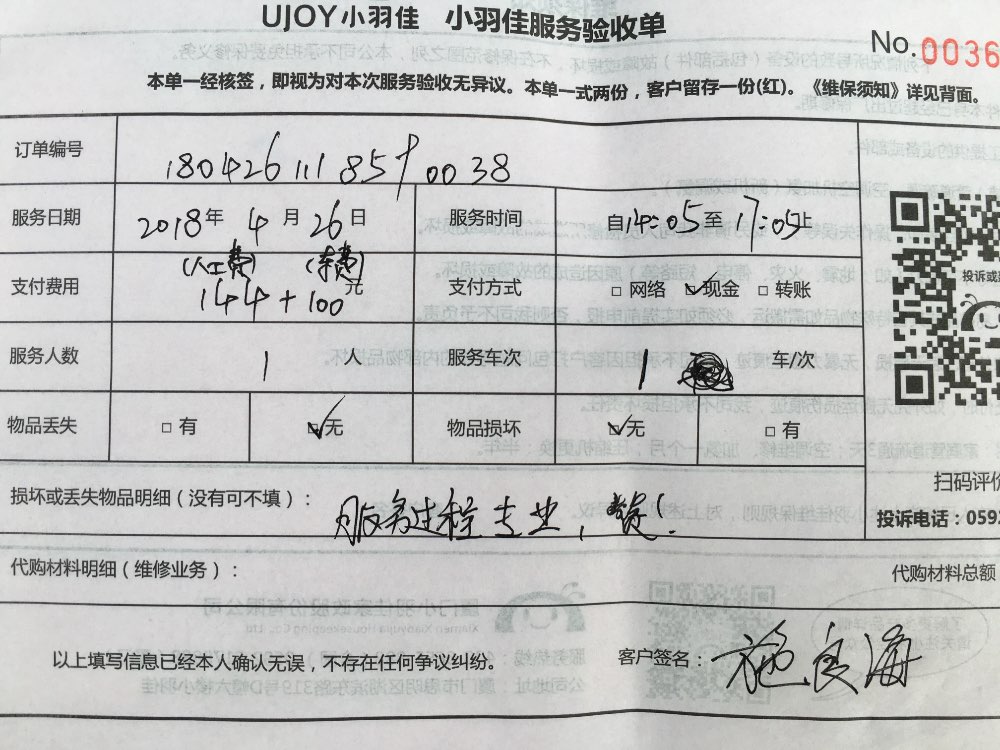 UJOY小羽佳 小羽佳服务验收单
No.0036
本单一经核签，即视为对本次服务验收无异议。本单一式两份，客户留存一份(红)。《维保须知》详见背面。
订单编号 180426111859 0038
服务日期 2018年 4 月 26 日 服务时间 自14:05至17:05止
(人工费) (车费)
支付费用 144+100元 支付方式 □ 网络 ☑现金 □ 转账
投诉或
服务人数 1 服务车次 1 车/次
物品丢失 □ 有 ☑无 物品损坏 ☑无 □ 有
扫码评价
损坏或丢失物品明细（没有可不填）：
服务过程专业，赞！
投诉电话：0592
代购材料明细（维修业务）： 代购材料总额
以上填写信息已经本人确认无误，不存在任何争议纠纷。 客户签名：施良海